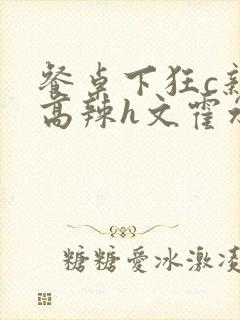 餐桌下狂c新
高辣h文霍水
糖糖爱冰激凌